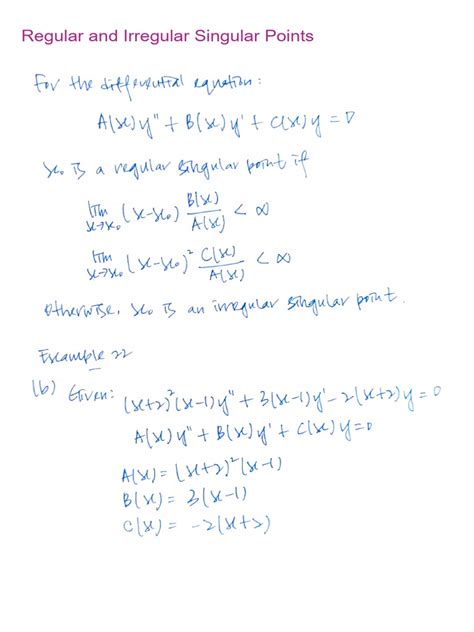 Regular and Irregular Singular Points
For the differential equation:
A(x)y" + B(x)y' + C(x)y = 0
x₀ is a regular singular point if
lim x→x₀ (x-x₀) B(x)/A(x) < ∞
lim x→x₀ (x-x₀)² C(x)/A(x) < ∞
Otherwise, x₀ is an irregular singular point.
Example 22
(b) Given: (x+2)²(x-1)y" + 3(x-1)y' - 2(x+2)y = 0
A(x)y" + B(x)y' + C(x)y = 0
A(x) = (x+2)²(x-1)
B(x) = 3(x-1)
C(x) = -2(x+2)